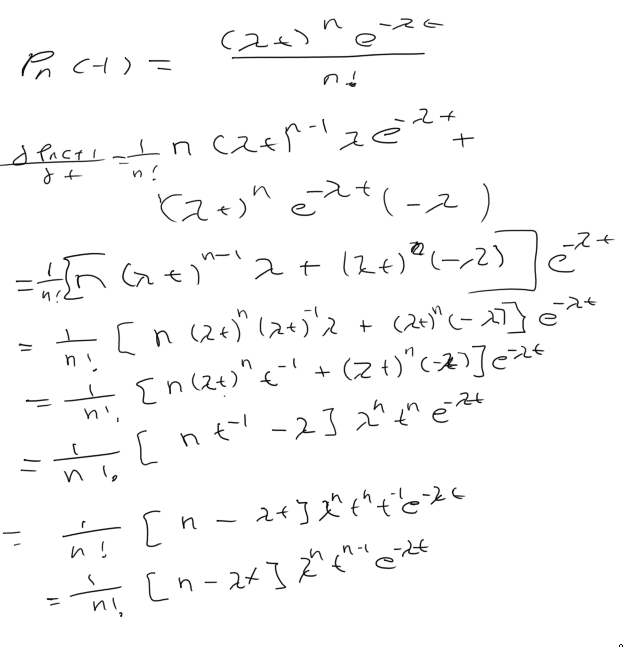 Pₙ(t) = (λt)ⁿ e^{-λt} / n!
dPₙ(t)/dt = 1/n! n (λt)^{n-1} λe^{-λt} +
(λt)ⁿ e^{-λt} (-λ)
= 1/n! [n (λt)^{n-1} λ + (λt)ⁿ (-λ)] e^{-λt}
= 1/n! [n (λt)ⁿ (λt)^{-1} λ + (λt)ⁿ (-λ)] e^{-λt}
= 1/n! [n(λt)ⁿ t^{-1} + (λt)ⁿ (-λ)] e^{-λt}
= 1/n! [n t^{-1} - λ] λⁿ tⁿ e^{-λt}
= 1/n! [n - λt] λⁿ tⁿ t^{-1} e^{-λt}
= 1/n! [n - λt] λⁿ t^{n-1} e^{-λt}